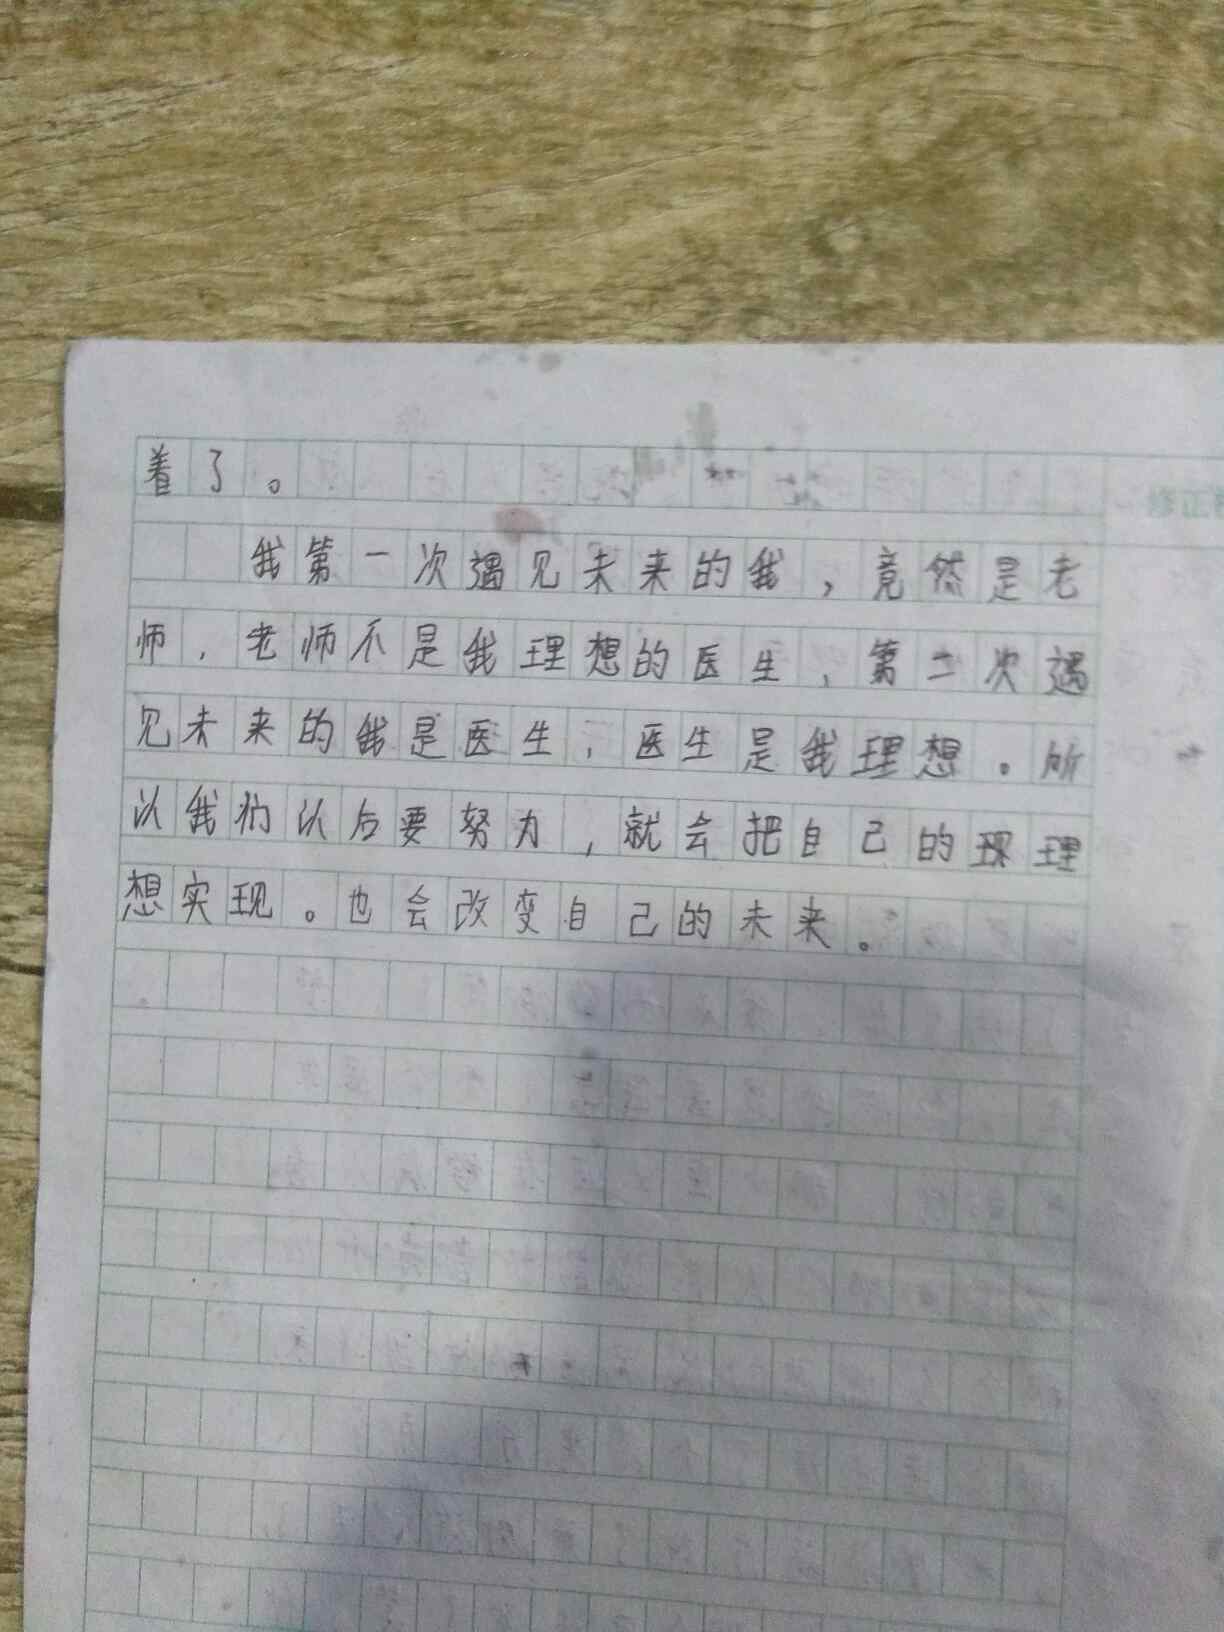 着了。
我第一次遇见未来的我，竟然是老
师，老师不是我理想的医生，第二次遇
见未来的我是医生，医生是我理想。所
以我们以后要努力，就会把自己的现理
想实现。也会改变自己的未来。
修正